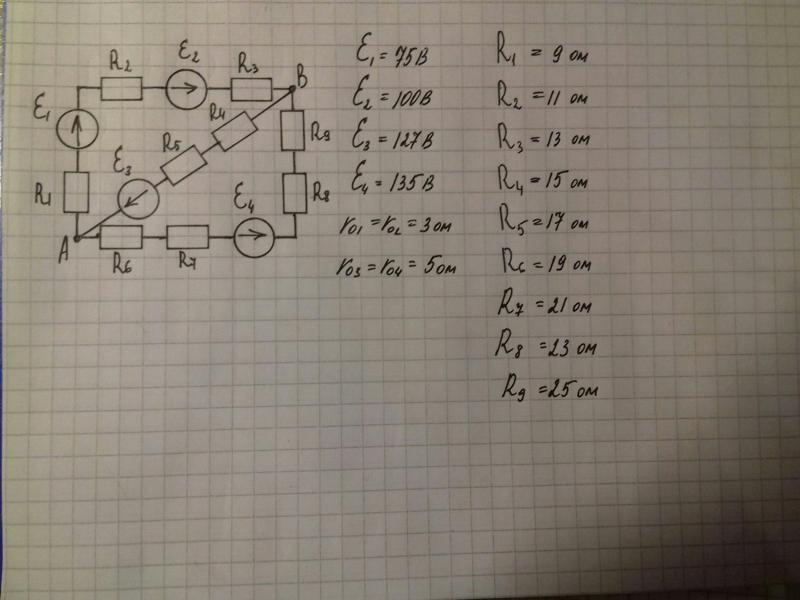 R₂ Ɛ₂ R₃ B
Ɛ₁ R₄ R₉
R₅
Ɛ₃
R₁ Ɛ₄ R₈
A
R₆ R₇
Ɛ₁ = 75В
Ɛ₂ = 100В
Ɛ₃ = 127В
Ɛ₄ = 135В
r₀₁ = r₀₂ = 3 ом
r₀₃ = r₀₄ = 5 ом
R₁ = 9 ом
R₂ = 11 ом
R₃ = 13 ом
R₄ = 15 ом
R₅ = 17 ом
R₆ = 19 ом
R₇ = 21 ом
R₈ = 23 ом
R₉ = 25 ом